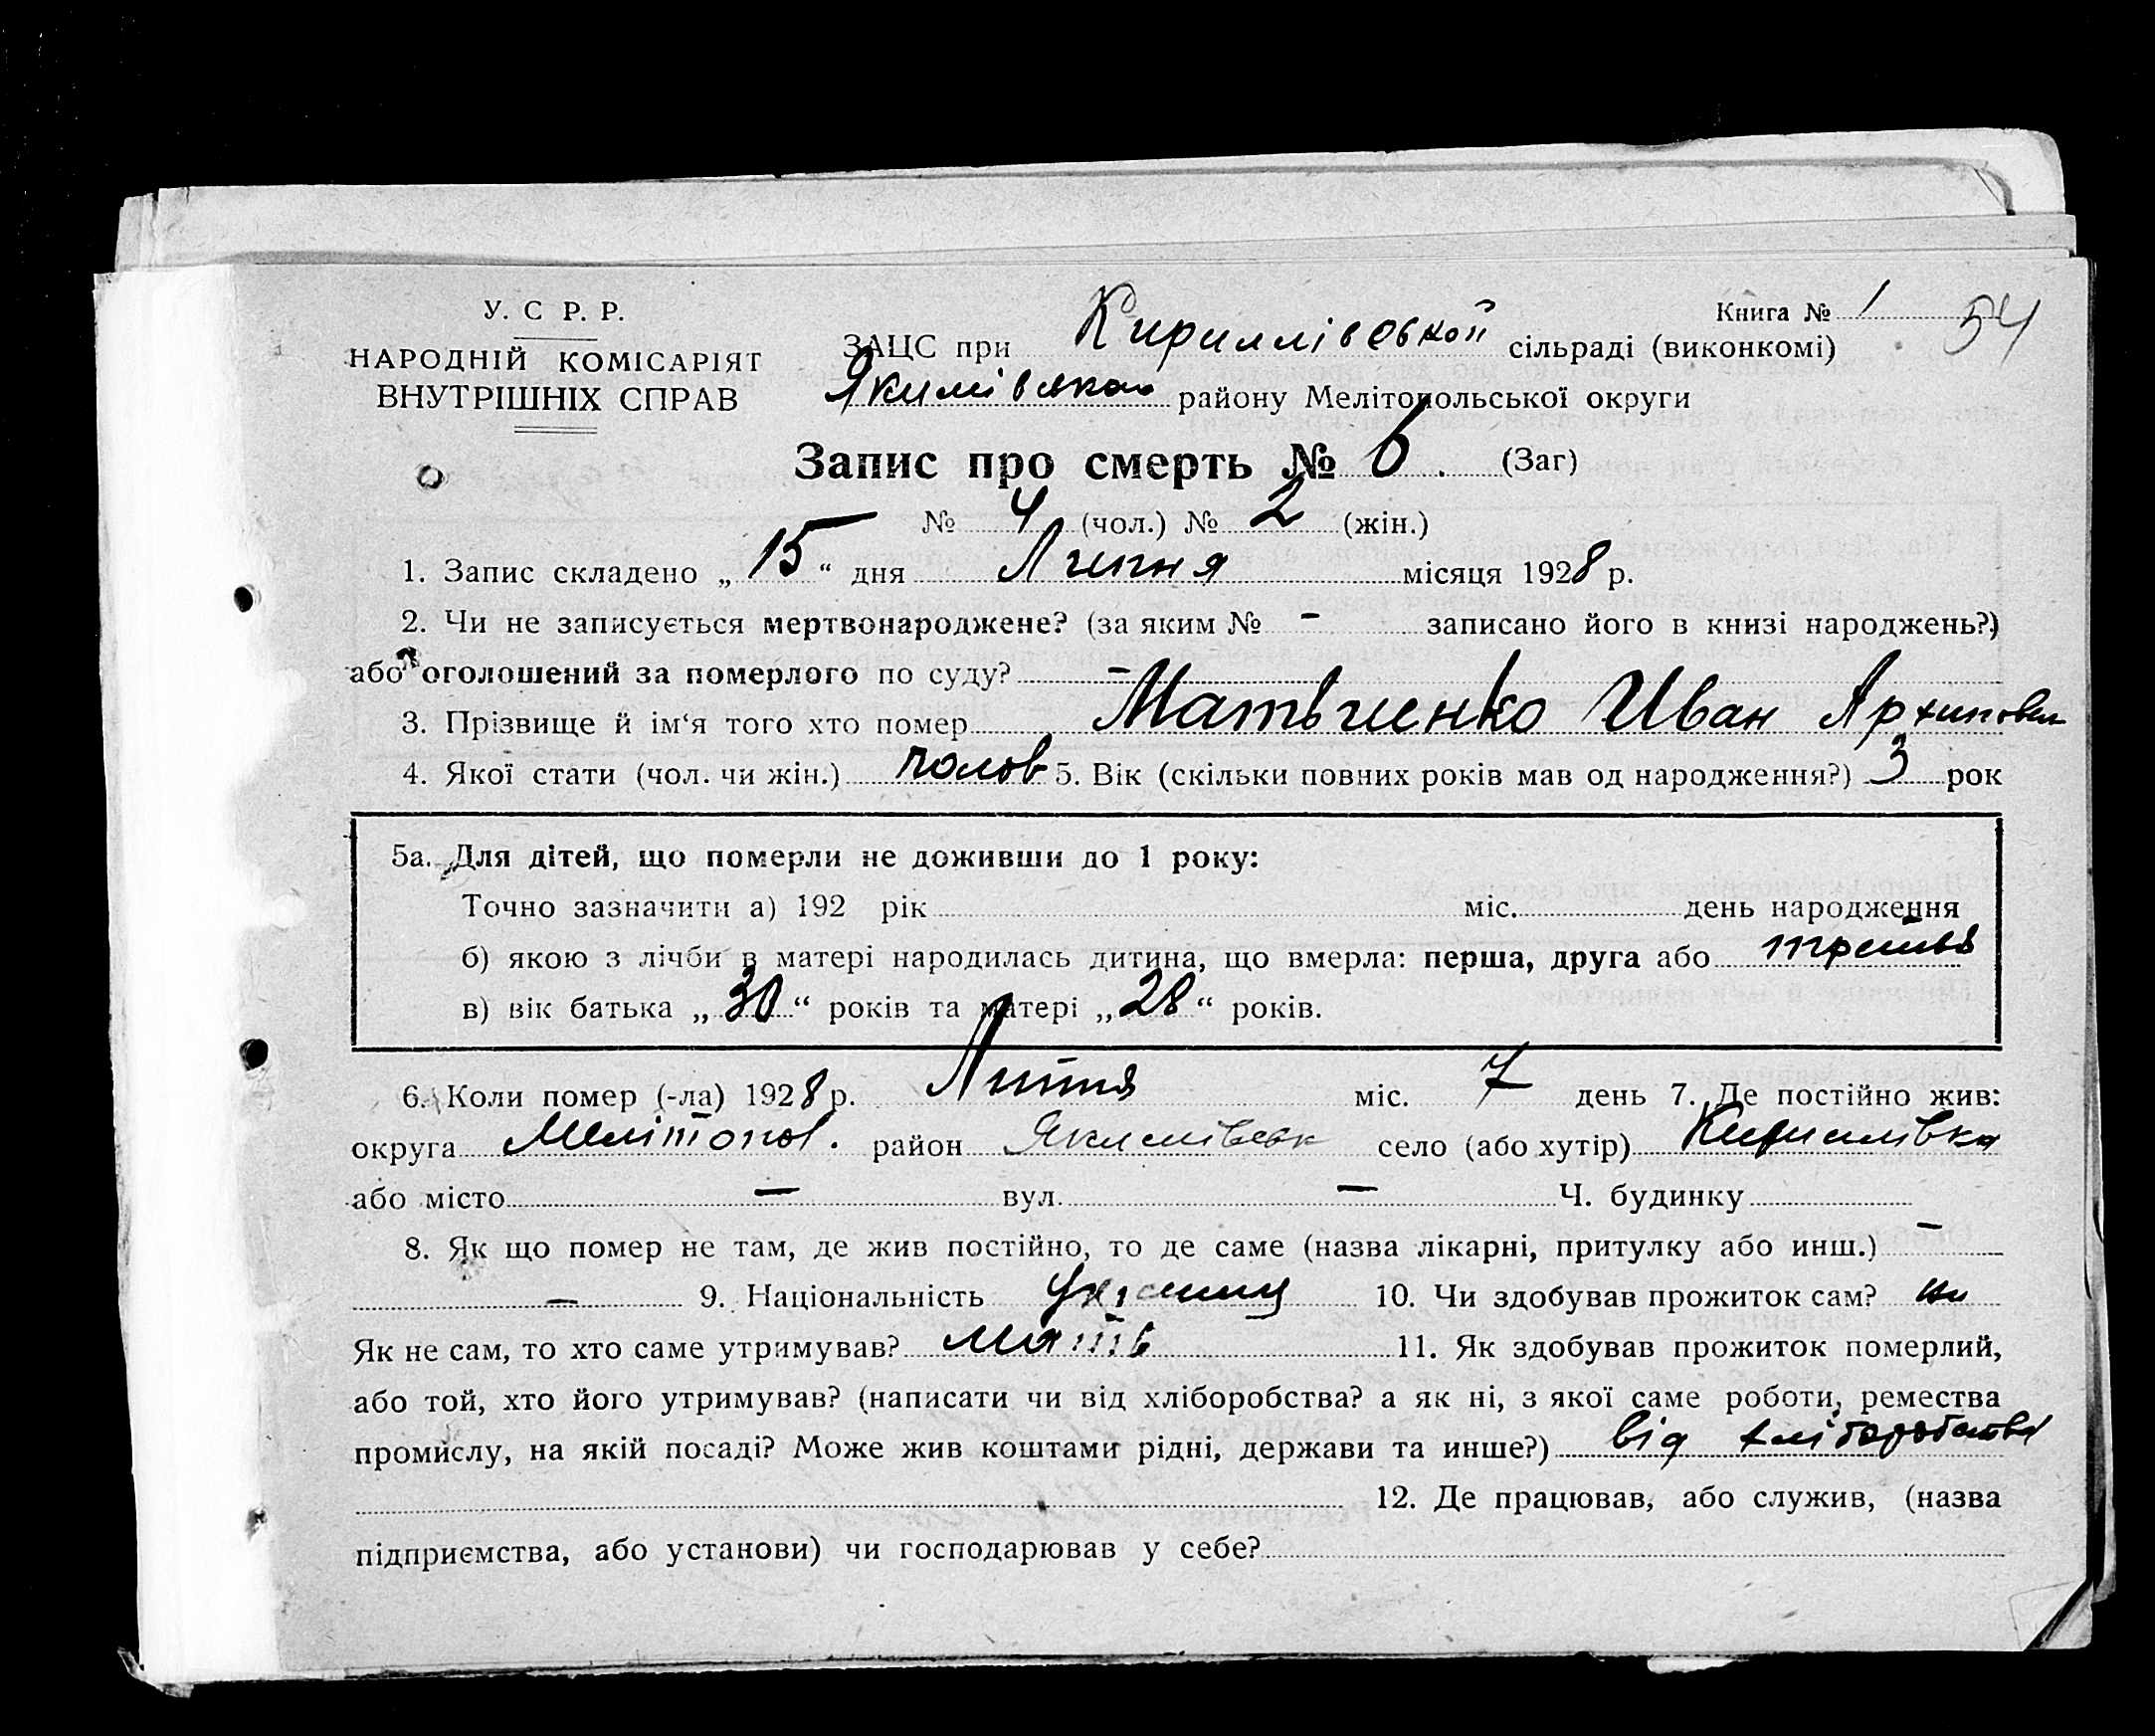 У. С Р. Р.
НАРОДНІЙ КОМІСАРІЯТ
ВНУТРІШНІХ СПРАВ
Книга № 1 54
ЗАЦС при Кириллівській сільраді (виконкомі)
Якимівської району Мелітопольської округи
Запис про смерть № 6. (Заг)
№ 4 (чол.) № 2 (жін.)
1. Запис складено „ 15 “ дня Липня місяця 1928 р.
2. Чи не записується мертвонароджене? (за яким № - записано його в книзі народжень?)
або оголошений за померлого по суду? –
3. Прізвище й ім‘я того хто помер Матвиенко Иван Архипович
4. Якої стати (чол. чи жін.) чолов 5. Вік (скільки повних років мав од народження?) 3 рок
5а. Для дітей, що померли не доживши до 1 року:
Точно зазначити а) 192 рік міс. день народження
б) якою з лічби в матері народилась дитина, що вмерла: перша, друга або третья
в) вік батька „ 30 “ років та матері „ 28 “ років.
6. Коли помер (-ла) 1928 р. Липня міс. 7 день 7. Де постійно жив:
округа Мелітопол. район Якимівськ село (або хутір) Кирилівка
або місто — вул. — Ч. будинку
8. Як що помер не там, де жив постійно, то де саме (назва лікарні, притулку або инш.) –
— 9. Національність 10. Чи здобував прожиток сам? ні
Як не сам, то хто саме утримував? мать 11. Як здобував прожиток померлий,
або той, хто його утримував? (написати чи від хліборобства? а як ні, з якої саме роботи, ремества
промислу, на якій посаді? Може жив коштами рідні, держави та инше?) від хліборобства
12. Де працював, або служив, (назва
підприємства, або установи) чи господарював у себе?